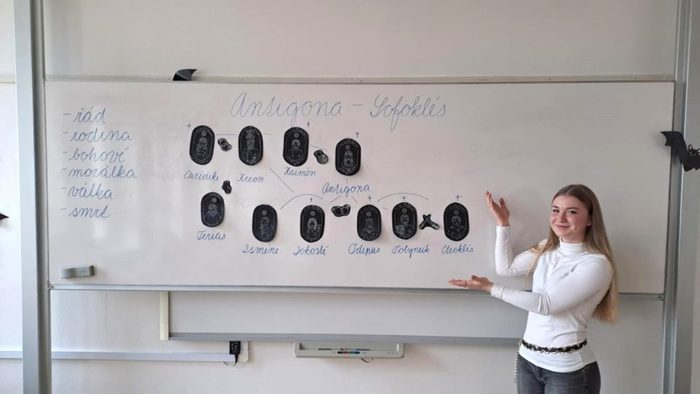 Antigona - Sofoklés
- řád
- rodina
- bohové
- morálka
- válka
- smrt
Euridike Kreon Haimón
Antigona
Tirias Ismene Iokasté Oidipus Polyneik Eteoklés